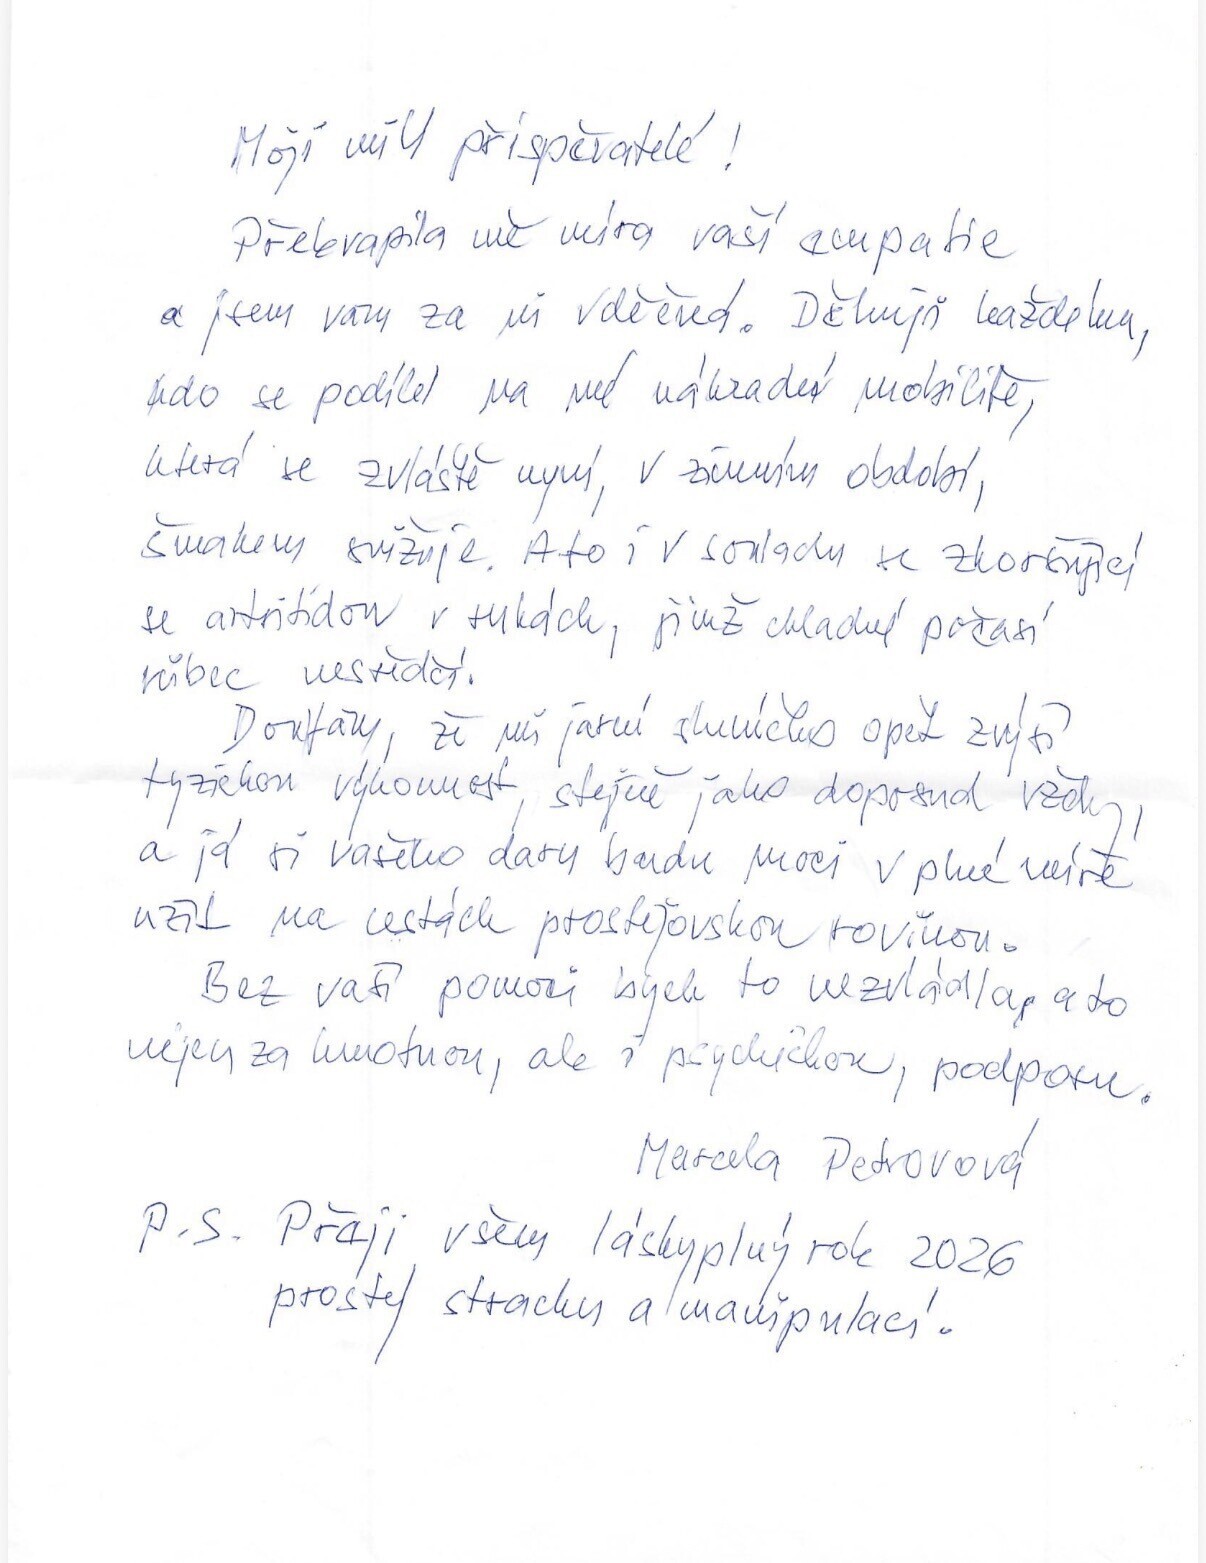 Moji milí přispěvatelé!
Překvapila mě míra vaší empatie
a jsem vám za ni vděčná. Děkuji každému,
kdo se podílel na mé náhradní mobilitě,
která se zvláště nyní, v zimním období,
šmahem snižuje. A to i v souladu se zhoršující
se artritidou v rukách, jimž chladné počasí
vůbec nesvědčí.
Doufám, že mi jarní sluníčko opět zvýší
fyzickou výkonnost, stejně jako doposud vždy,
a já si vašeho daru budu moci v plné míře
užít na cestách prostějovskou rovinou.
Bez vaší pomoci bych to nezvládla, a to
nejen za hmotnou, ale i psychickou, podporu.
Marcela Petrovová
P.S. Přeji všem láskyplný rok 2026
prostý strachu a manipulací.